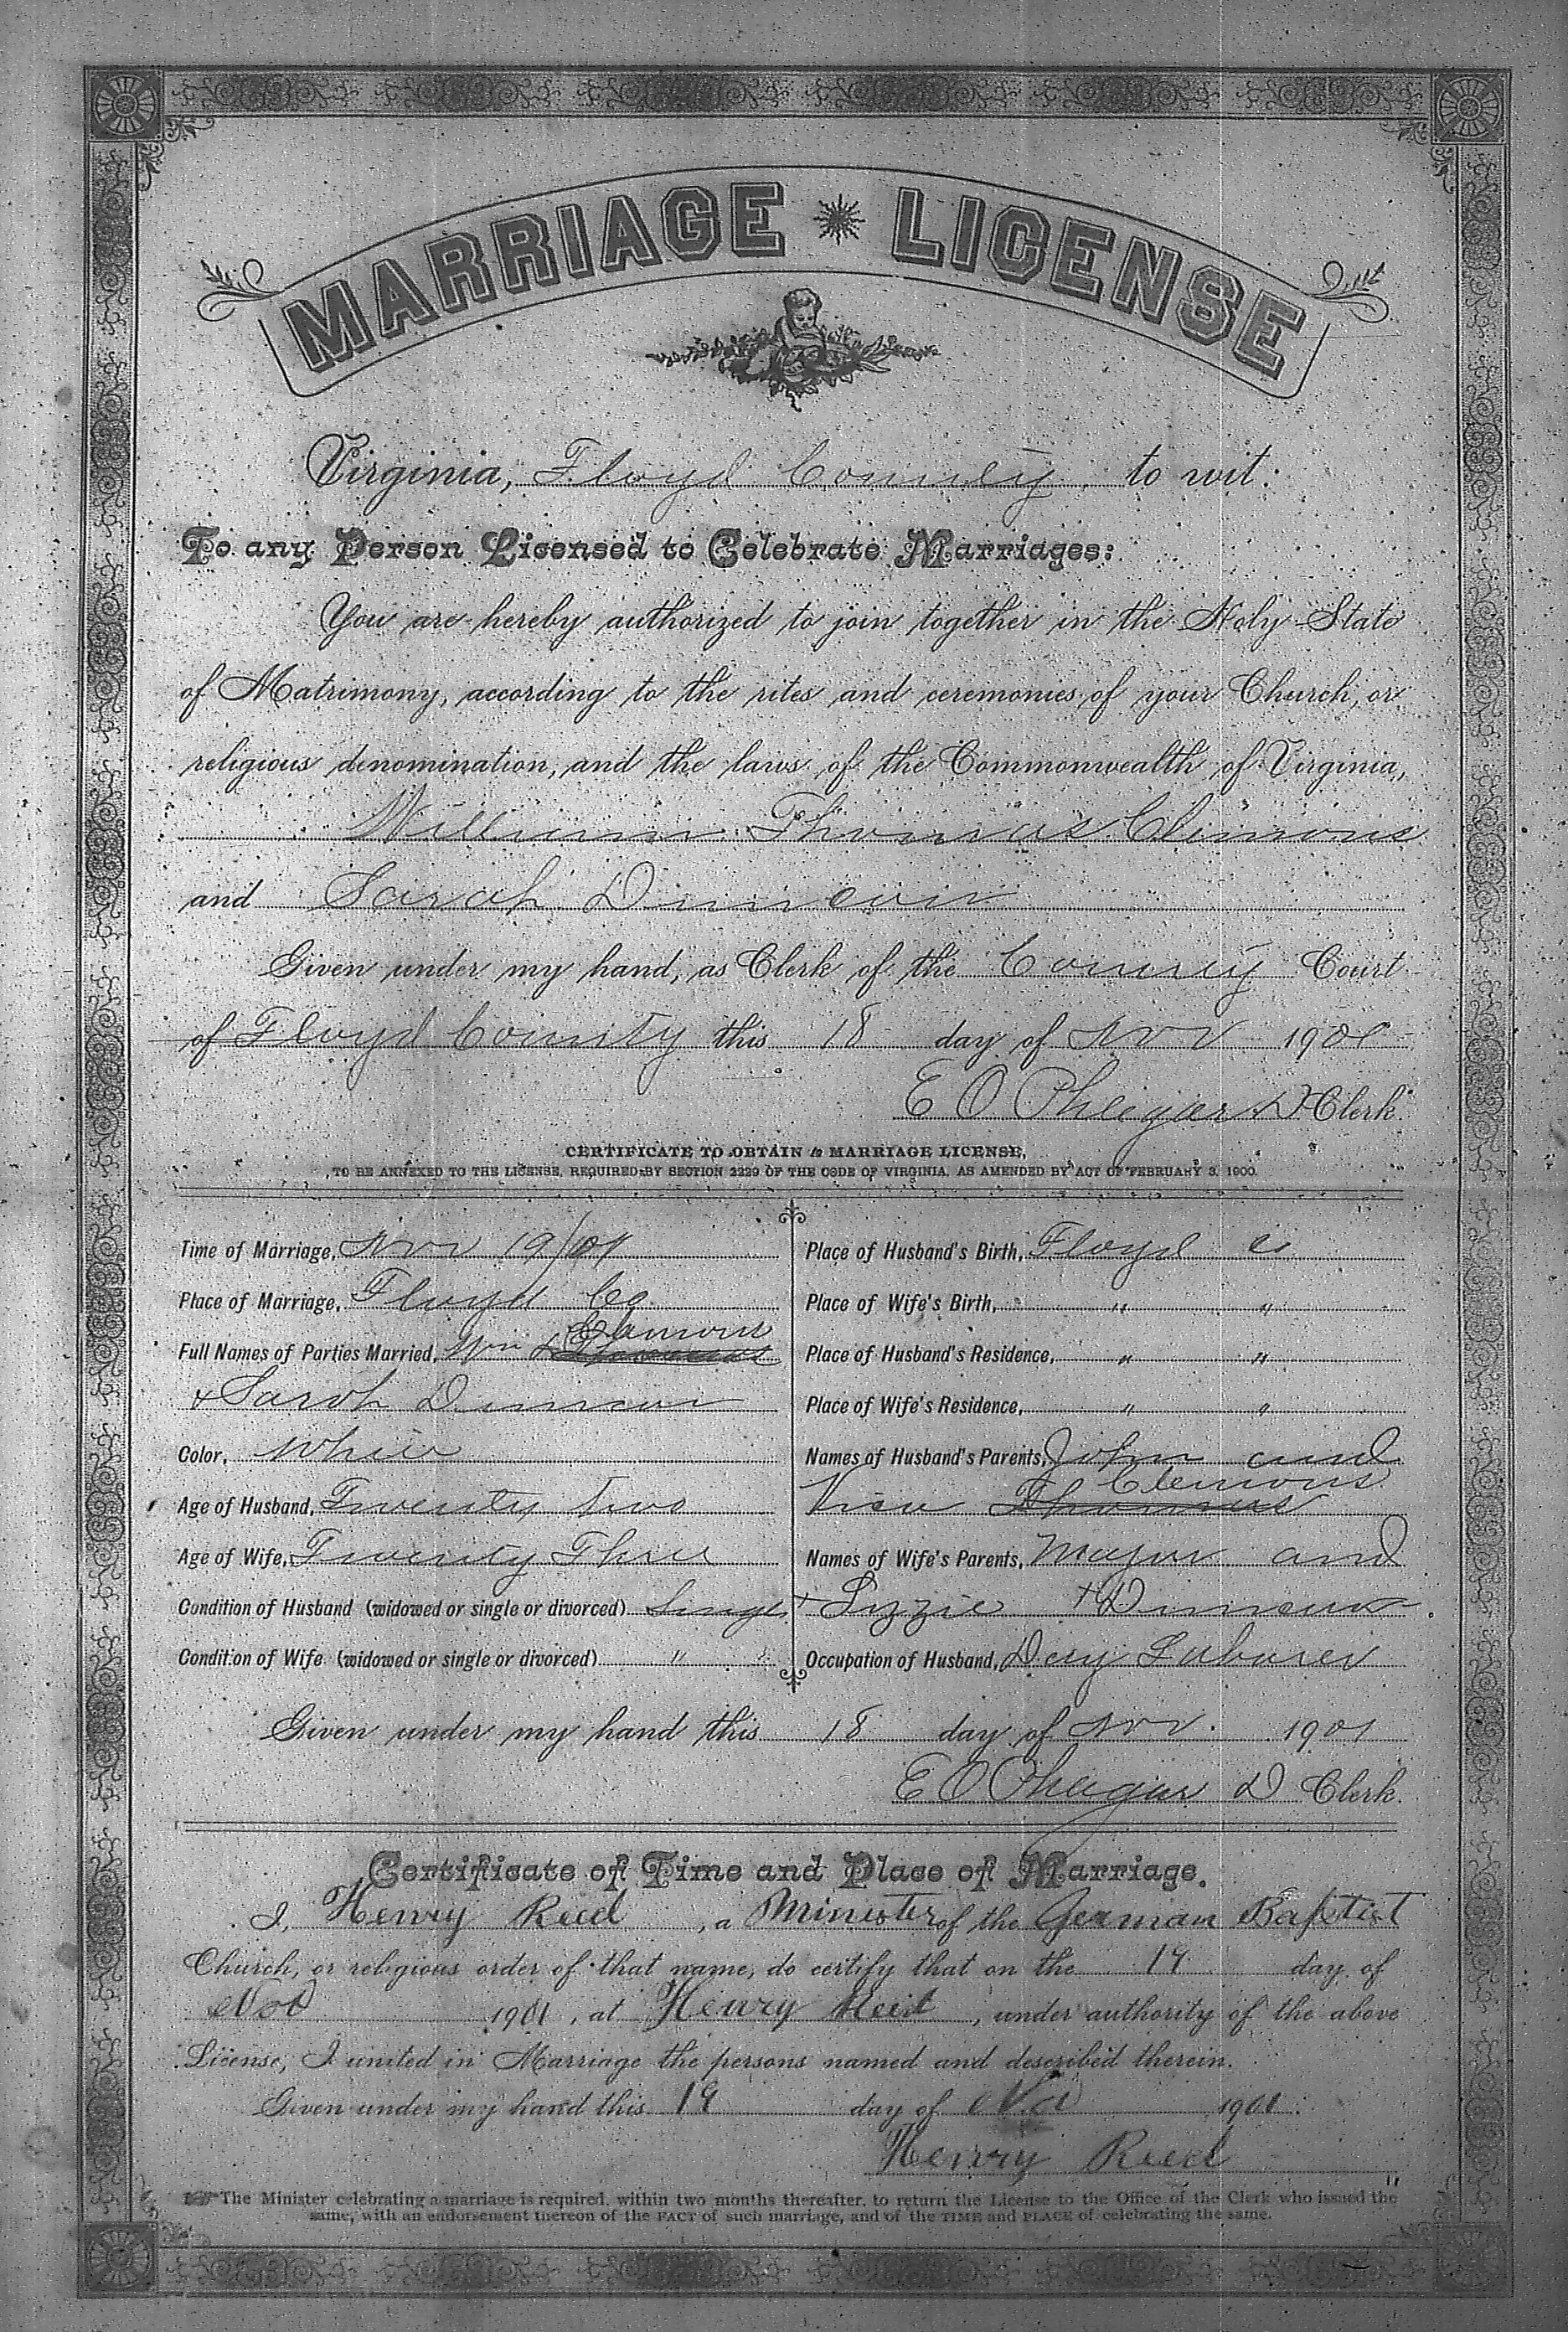 MARRIAGE LICENSE
Virginia, Floyd County to wit:
To any Person Licensed to Celebrate Marriages:
You are hereby authorized to join together in the Holy State
of Matrimony, according to the rites and ceremonies of your Church, or
religious denomination, and the laws of the Commonwealth of Virginia,
William Thomas Clemons
and Sarah Duncan
Given under my hand, as Clerk of the County Court
of Floyd County this 18 day of Nov 1901
E O Phlegar D Clerk.
CERTIFICATE TO OBTAIN A MARRIAGE LICENSE,
TO BE ANNEXED TO THE LICENSE, REQUIRED BY SECTION 2229 OF THE CODE OF VIRGINIA, AS AMENDED BY ACT OF FEBRUARY 3, 1900.
Time of Marriage, Nov 19/01
Place of Marriage, Floyd Co.
Clemons
Full Names of Parties Married, Wm Thomas
+ Sarah Duncan
Color, White
Age of Husband, Twenty two
Age of Wife, Twenty Three
Condition of Husband (widowed or single or divorced) Single
Condition of Wife (widowed or single or divorced) "
Place of Husband's Birth, Floyd Co
Place of Wife's Birth, " "
Place of Husband's Residence, " "
Place of Wife's Residence, " "
Names of Husband's Parents, John and
Clemons
Thomas
Names of Wife's Parents, Major and
+ Lizzie + Duncan
Occupation of Husband, Day Laborer
Given under my hand this 18 day of Nov. 1901
E O Phlegar D Clerk.
Certificate of Time and Place of Marriage.
I, Henry Reed, a Minister of the German Baptist
Church, or religious order of that name, do certify that on the 19 day of
Nov 1901, at Henry Reed, under authority of the above
License, I united in Marriage the persons named and described therein.
Given under my hand this 19 day of Nov 1901.
Henry Reed
The Minister celebrating a marriage is required, within two months thereafter, to return the License to the Office of the Clerk who issued the
same, with an endorsement thereon of the FACT of such marriage, and of the TIME and PLACE of celebrating the same.